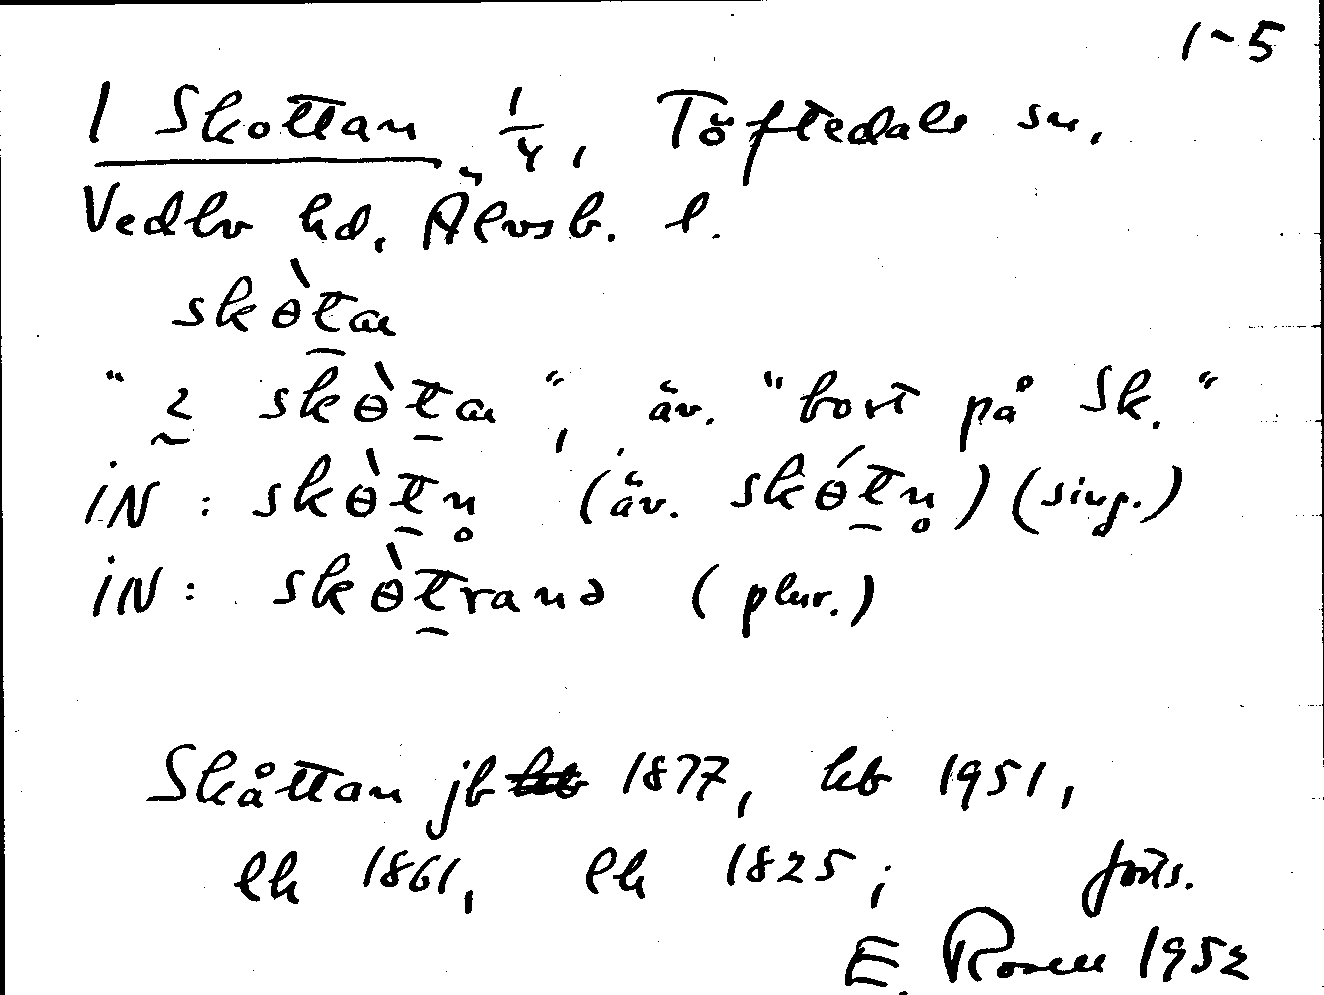 1-5
1 Skottan 1/4, Töftedals sn,
Vedbo hd, Älvsb. l.
skɵ̀t̠a
"ı̰ skɵ̀t̠a", äv. "bort på Sk."
iN: skɵ̀t̠n̥ (äv. skɵ́t̠n̥) (sing.)
iN: skɵ̀t̠ranə (plur.)
Skåttan jb 1877, kb 1951,
lh 1861, lh 1825; forts.
E. Rosell 1952